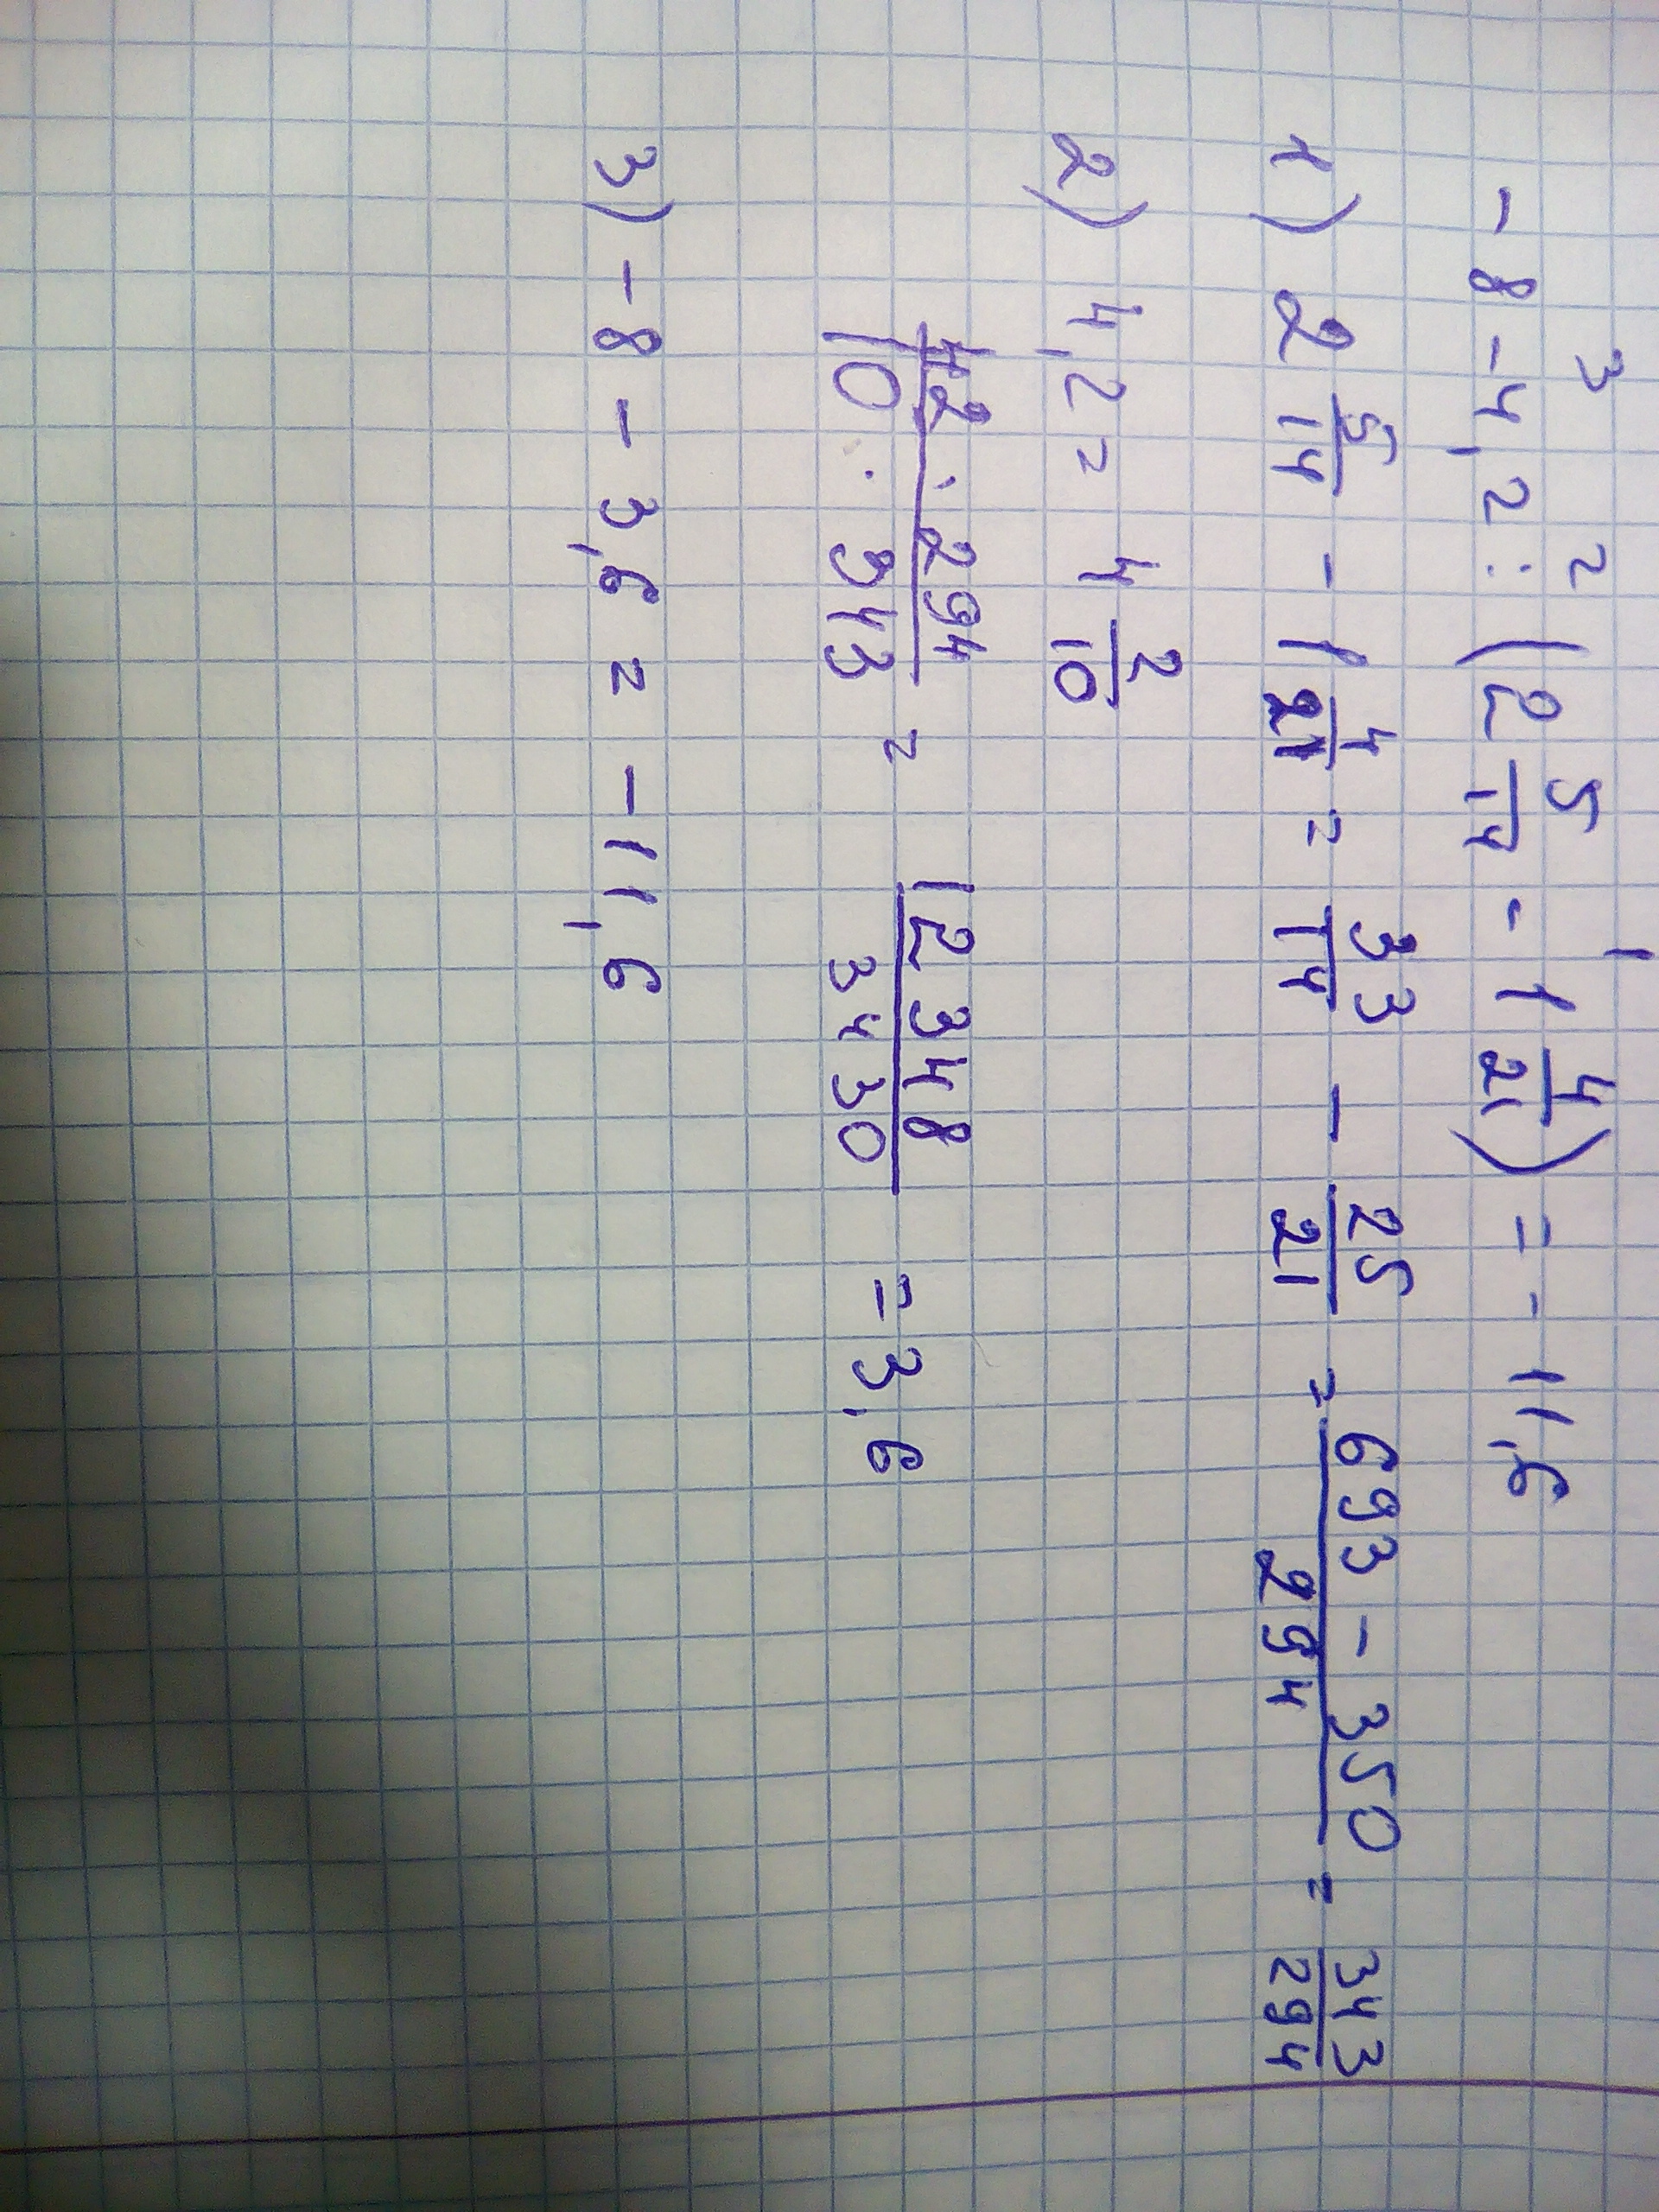 3 2 1
- 8 - 4,2 : (2 5/14 - 1 4/21) = - 11,6
1) 2 5/14 - 1 4/21 = 33/14 - 25/21 = (693 - 350)/294 = 343/294
2) 4,2 = 4 2/10
42/10 · 294/343 = 12348/3430 = 3,6
3) - 8 - 3,6 = - 11,6